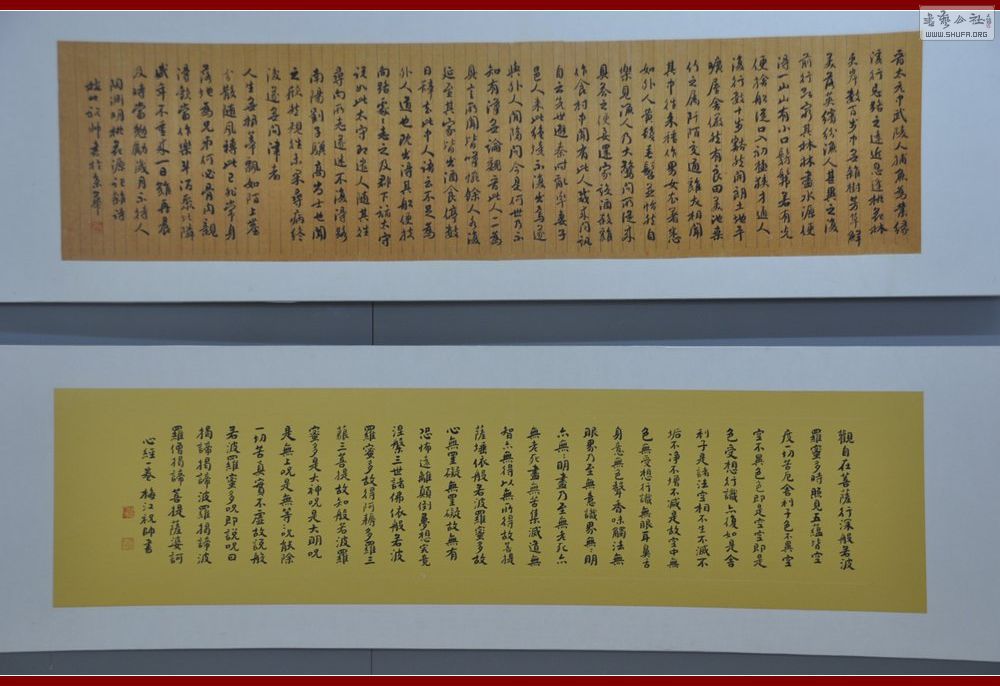 書藝公社
WWW.SHUFA.ORG
晉太元中武陵人捕魚為業緣
溪行忘路之遠近忽逢桃花林
夾岸數百步中無雜樹芳草鮮
美落英繽紛漁人甚異之復
前行欲窮其林林盡水源便
得一山山有小口髣髴若有光
便捨船從口入初極狹才通人
復行數十步豁然開朗土地平
曠屋舍儼然有良田美池桑
竹之屬阡陌交通雞犬相聞
其中往來種作男女衣著悉
如外人黃髮垂髫並怡然自
樂見漁人乃大驚問所從來
具答之便要還家設酒殺雞
作食村中聞有此人咸來問訊
自云先世避秦時亂率妻子
邑人來此絕境不復出焉遂
與外人間隔問今是何世乃不
知有漢無論魏晉此人一一為
具言所聞皆嘆惋餘人各復
延至其家皆出酒食停數
日辭去此中人語云不足為
外人道也既出得其船便扶
向路處處志之及郡下詣太守
說如此太守即遣人隨其往
尋向所志遂迷不復得路
南陽劉子驥高尚士也聞
之欣然規往未果尋病終
後遂無問津者
人生無根蒂飄如陌上塵
分散隨風轉此已非常身
落地為兄弟何必骨肉親
得歡當作樂斗酒聚比鄰
盛年不重來一日難再晨
及時當勉勵歲月不待人
陶淵明桃花源記雜詩
觀自在菩薩行深般若波
羅蜜多時照見五蘊皆空
度一切苦厄舍利子色不異空
空不異色色即是空空即是
色受想行識亦復如是舍
利子是諸法空相不生不滅不
垢不淨不增不減是故空中無
色無受想行識無眼耳鼻舌
身意無色聲香味觸法無
眼界乃至無意識界無無明
亦無無明盡乃至無老死亦
無老死盡無苦集滅道無
智亦無得以無所得故菩提
薩埵依般若波羅蜜多故
心無罣礙無罣礙故無有
恐怖遠離顛倒夢想究竟
涅槃三世諸佛依般若波
羅蜜多故得阿耨多羅三
藐三菩提故知般若波羅
蜜多是大神咒是大明咒
是無上咒是無等等咒能除
一切苦真實不虛故說般
若波羅蜜多咒即說咒曰
揭諦揭諦波羅揭諦波
羅僧揭諦菩提薩婆訶
心經一卷 梅江祝帥書